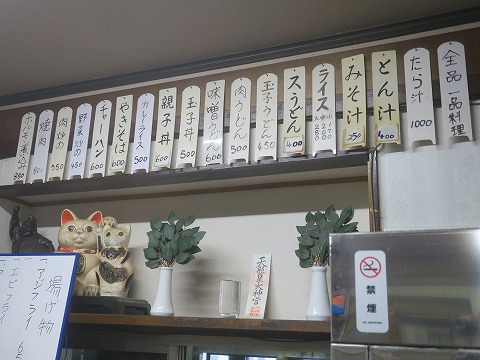 全品一品料理
たら汁 1000
とん汁 400
みそ汁 250
ライス 小170 中200 大250
スうどん 400
玉子うどん 450
肉うどん 500
味噌うどん 600
玉子丼 500
親子丼 600
カレーライス 500
やきそば 600
チャーハン 600
野菜炒め 450
肉炒め 500
焼肉
ホルモン煮込み
揚げ物
アジフライ
エビフライ
禁煙